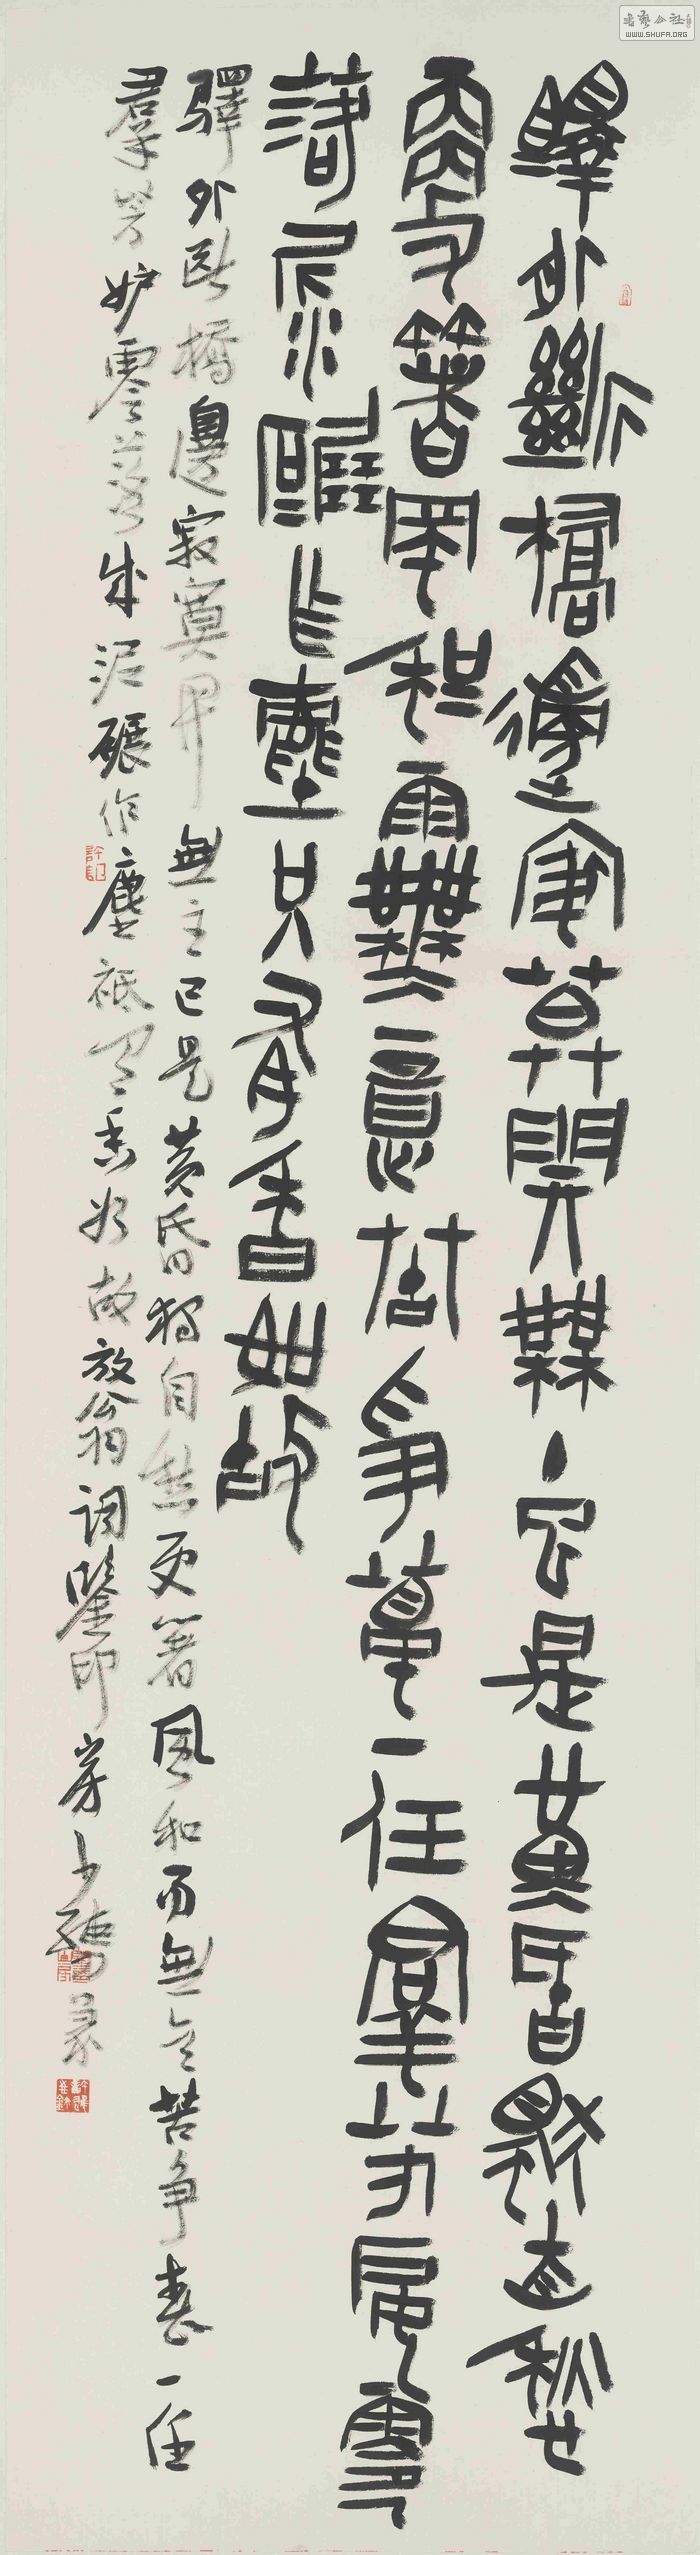 書藝公社
WWW.SHUFA.ORG
驛外斷橋邊寂莫開無主已是黃昏獨自愁
更著風和雨無意苦爭春一任羣芳妒零
落泥碾作塵只有香如故
驛外斷橋邊寂寞開無主已是黃昏獨自愁更著風和雨無意苦爭春一任
羣芳妒零落成泥碾作塵祗有香如故放翁詞